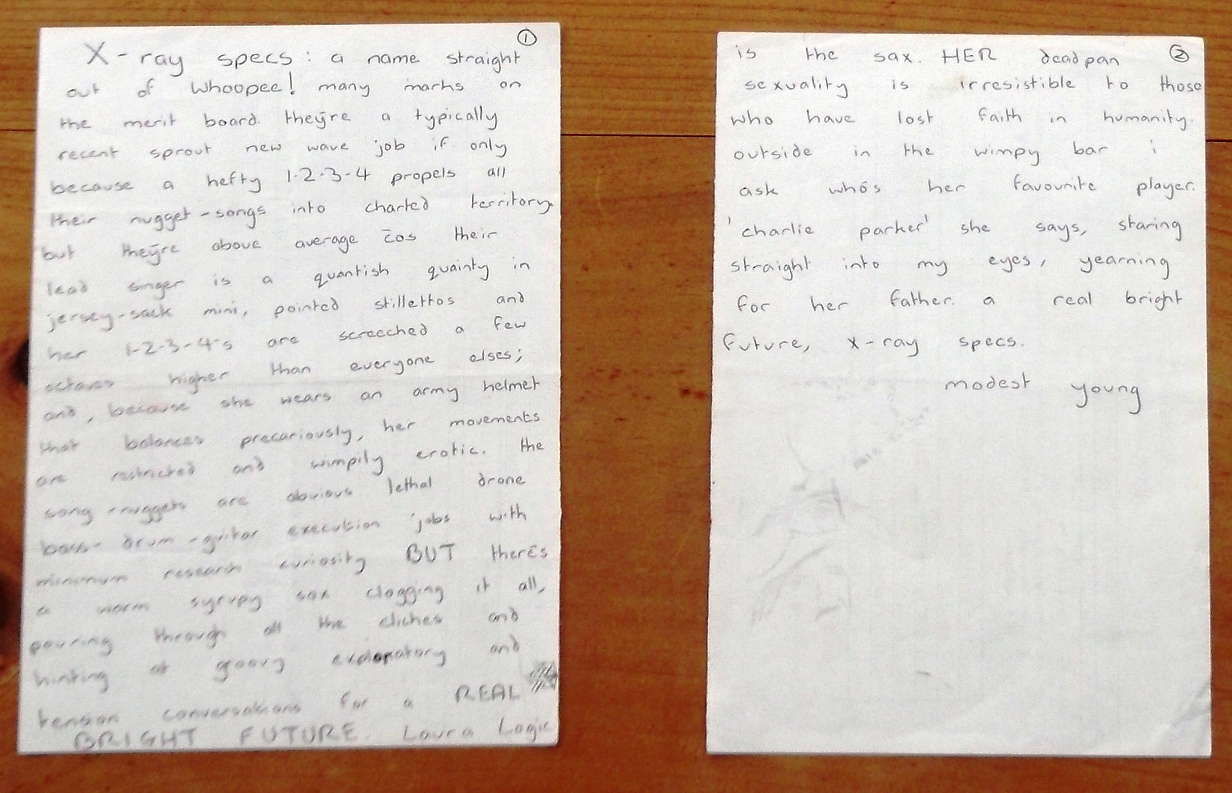 ①
X-ray specs: a name straight
out of Whoopee! many marks on
the merit board. they're a typically
recent sprout new wave job if only
because a hefty 1-2-3-4 propels all
their nugget-songs into charted territory
but they're above average 'cos their
lead singer is a quantish quainty in
jersey-sack mini, pointed stillettos and
her 1-2-3-4-s are screeched a few
octaves higher than everyone elses;
and, because she wears an army helmet
that balances precariously, her movements
are restricted and wimpily erotic. the
song-nuggets are obvious lethal drone
bass-drum-guitar execution jobs with
minimum research curiosity BUT there's
a warm syrupy sax clogging it all,
pouring through all the cliches and
hinting at groovy exploratory and
tension conversations for a REAL
BRIGHT FUTURE. Laura Logic
②
is the sax. HER deadpan
sexuality is irresistible to those
who have lost faith in humanity.
outside in the wimpy bar i
ask who's her favourite player.
'charlie parker' she says, staring
straight into my eyes, yearning
for her father. a real bright
future, x-ray specs.
modest young